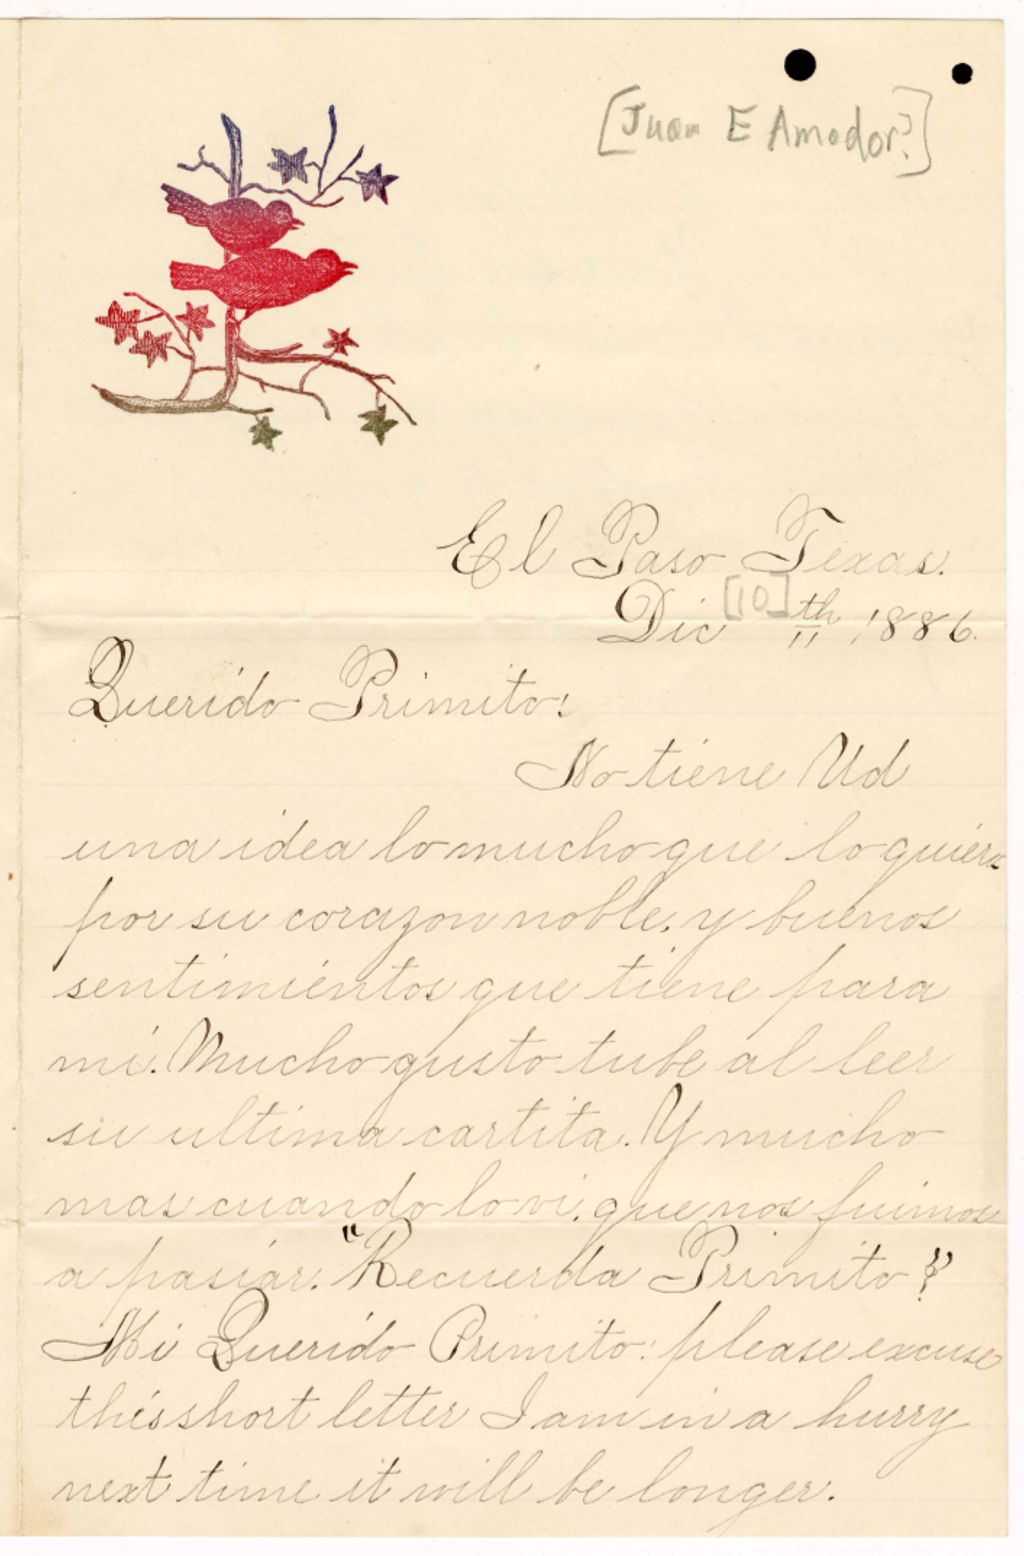 [Juan E Amador?]
El Paso Texas.
Dic [10] th 1886.
Querido Primito:
No tiene Ud
una idea lo mucho que lo quiero
por su corazon noble, y buenos
sentimientos que tiene para
mi. Mucho gusto tube al leer
su ultima cartita. Y mucho
mas cuando lo vi, que nos fuimos
a pasiar. "Recuerda Primito?"
Mi Querido Primito: please excuse
this short letter I am in a hurry
next time it will be longer.